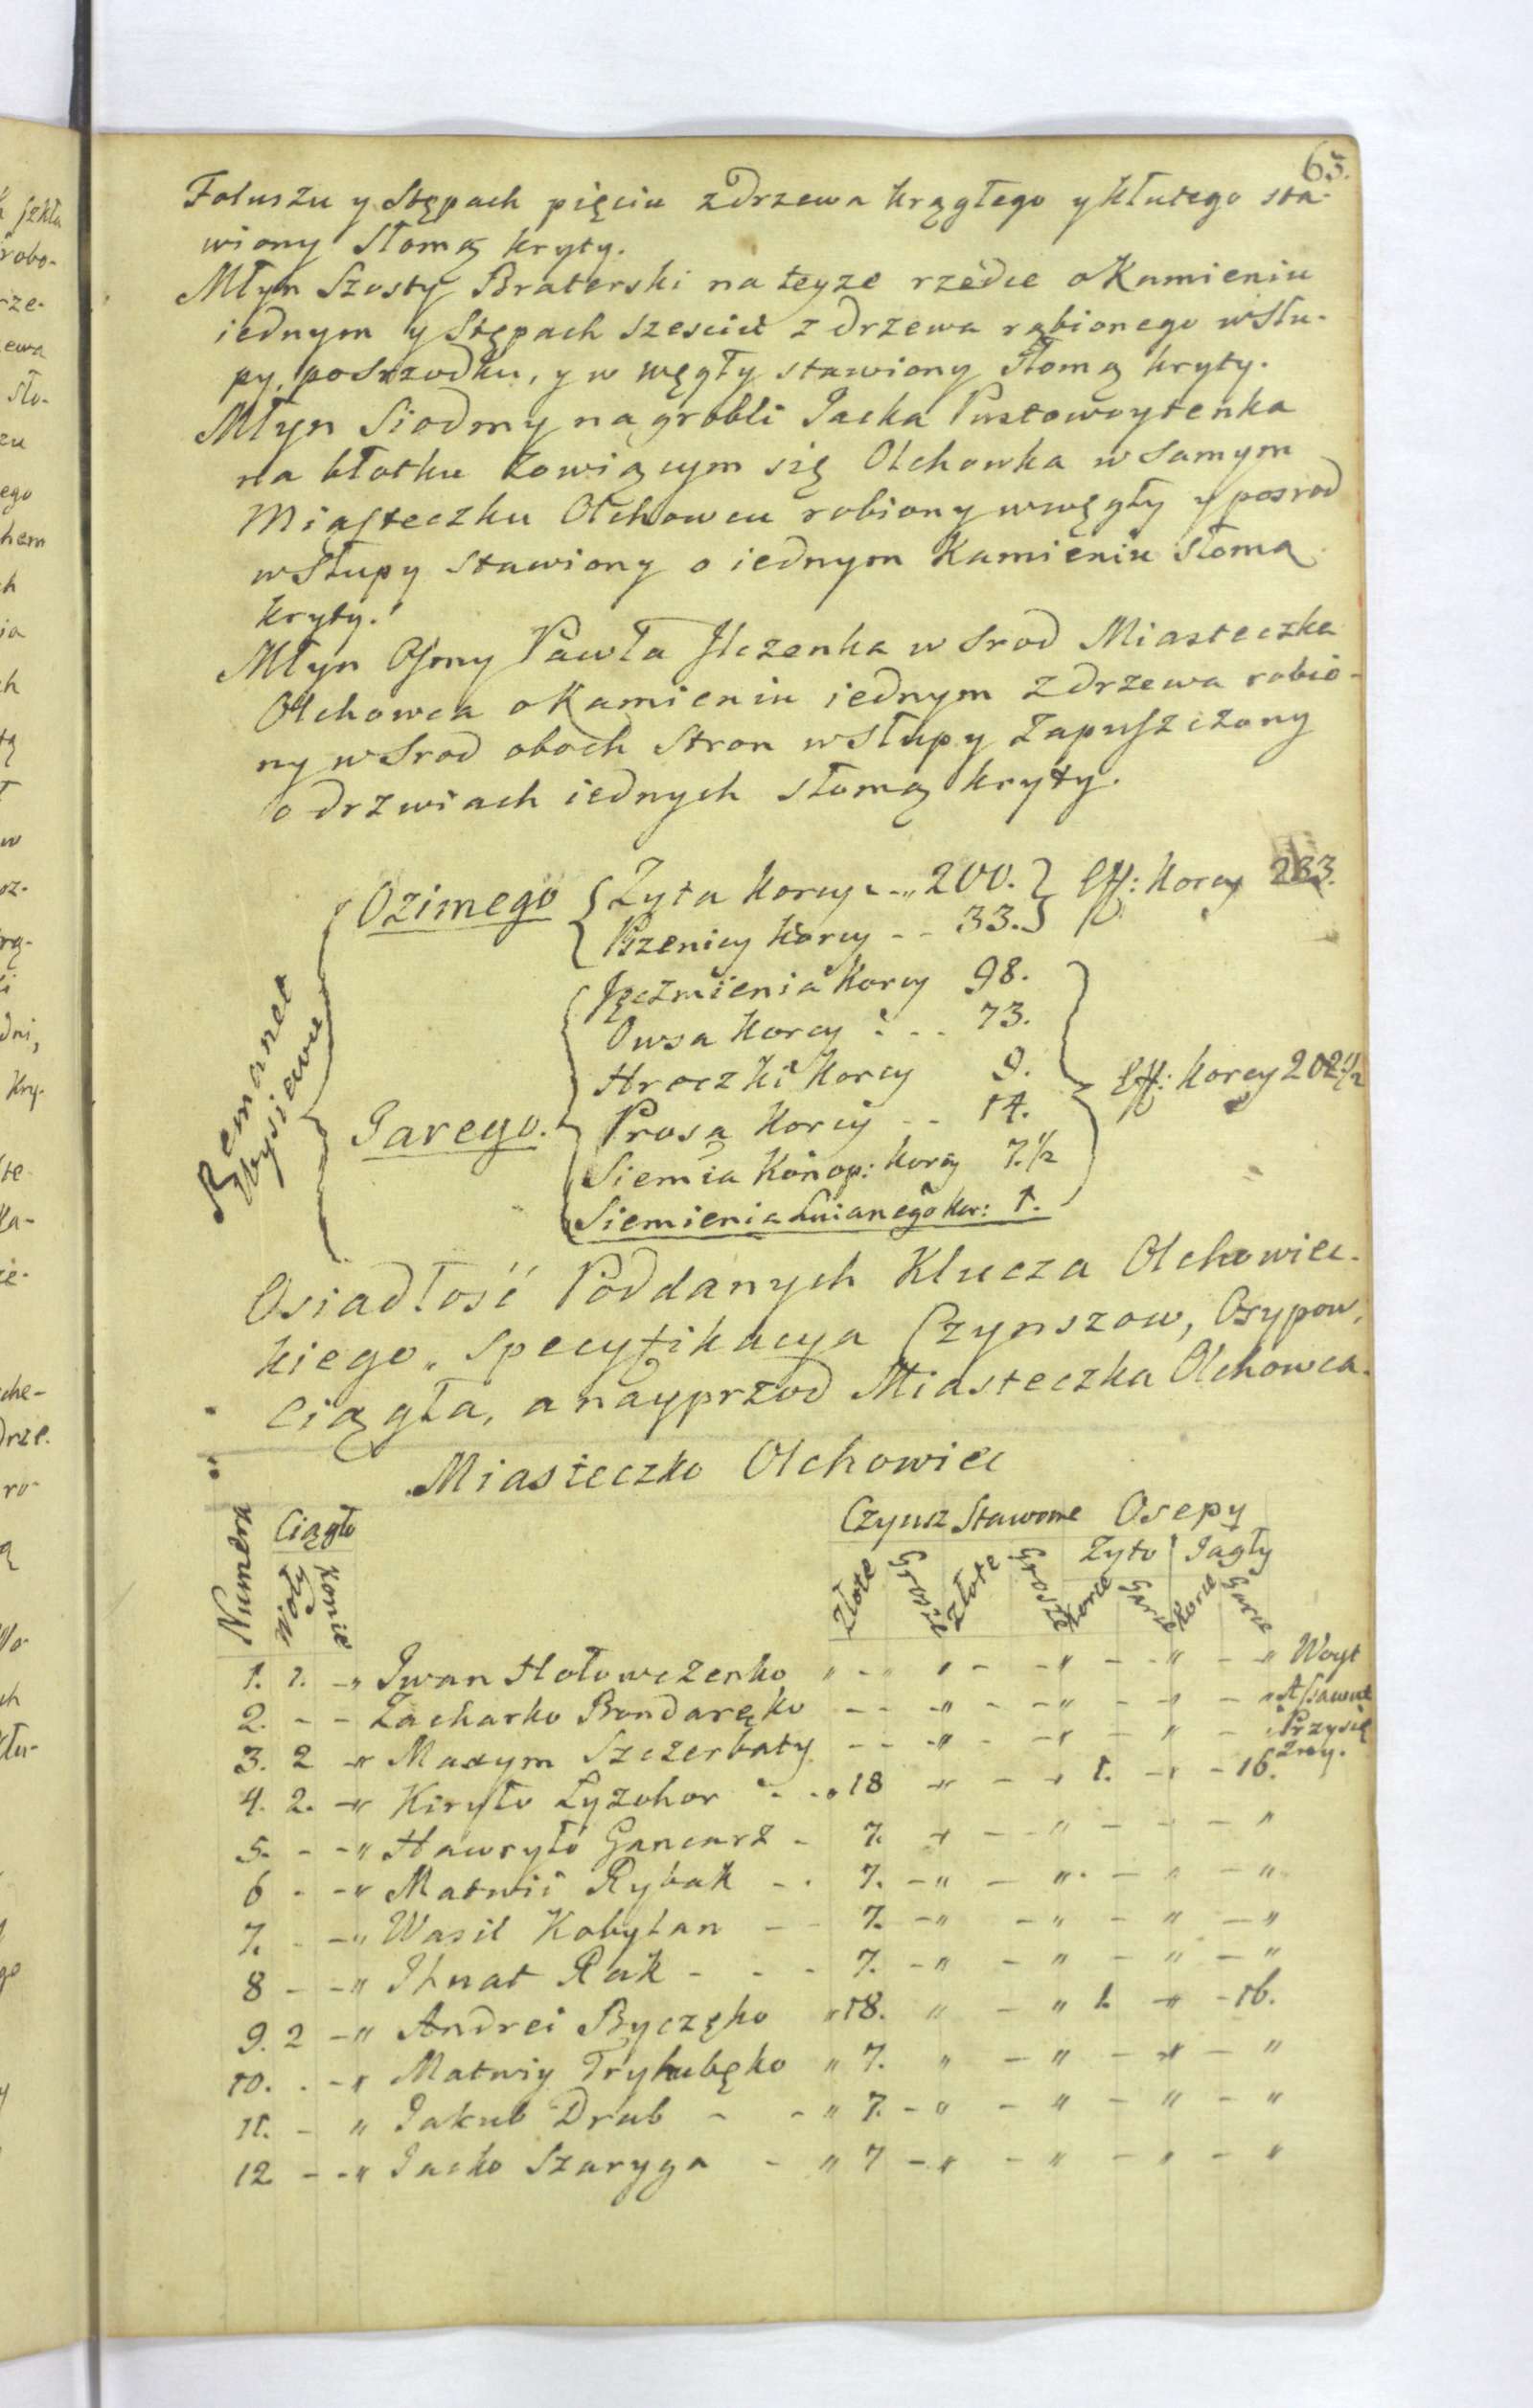 63.
Foluszu y Stępach pięciu z Drzewa krągłego y kłutego sta-
wiony Słomą kryty.
Młyn Szosty Braterski na teyze rzédce o Kamieniu
iednym y Stępach szesciu z drzewa rąbionego w Słu-
py, posrzodku, y w węgły stawiony Słomą kryty.
Młyn Siodmy na grobli Jacka Pustowoytenka
na błotku zowiącym się Olchowka w samym
Miasteczku Olchowcu robiony w węgły y posrod
w Słupy stawiony o iednym Kamieniu słomą
kryty.
Młyn Osmy Pawła Ilczenka w srod Miasteczka
Olchowca o Kamieniu iednym z drzewa robio-
ny w srod oboch Stron w Słupy zapuszczony
o drzwiach iednych słomą kryty.
Remanet
Wysiewu
Ozimego { Zyta korcy - - " 200. } Eff: korcy 233.
Pszenicy korcy - - 33.
Jęczmienia korcy 98.
Owsa korcy - - - 73.
Hreczki korcy 9.
Jarego. Prosa korcy - - 14. Eff: korcy 202 1/2
Siemia Konop: korcy 7. 1/2
Siemienia Lnianego kor: 1.
Osiadłość Poddanych Klucza Olchowiec-
kiego, specyfikacya Czynszow, Osypow,
Ciągła, a nayprzod Miasteczka Olchowca.
Miasteczko Olchowiec
Numera Ciągło Czynsz Stawowe Osepy
Woły Konie Złote Grosze Złote Grosze Zyto Jagły
Korce Garce Korce Garce
1. 1. - " Iwan Hołowczenko " - " " - - " - - " - " Woyt
2. - - Zacharko Bondaręko - - - " - - " - " - " Assawuł
3. 2 - " Maxym Szczerbaty - - - " - - " - " - " Przysię
żny.
4. 2. - " Kiryło Lyzohor - - " 18 - " - - " 1. - " - 16.
5. - - " Hawryło Gancarz - 7. - " - - " - - - "
6 - - " Matwii Rybak - - 7. - " - " - " - "
7. - - " Wasil Kobylan - - 7. - " - " - " - "
8 - - " Ihnat Rak - - - 7. - " - " - " - "
9. 2 - " Andrei Byczęko " 18. " - " 1. - " - 16.
10. - - " Matwiy Tryhubęko " 7. " - " - " - "
11. - " Jakub Drub - - " 7. - " - " - " - "
12 - - " Jacko Szaryga - " 7 - " - " - " - "